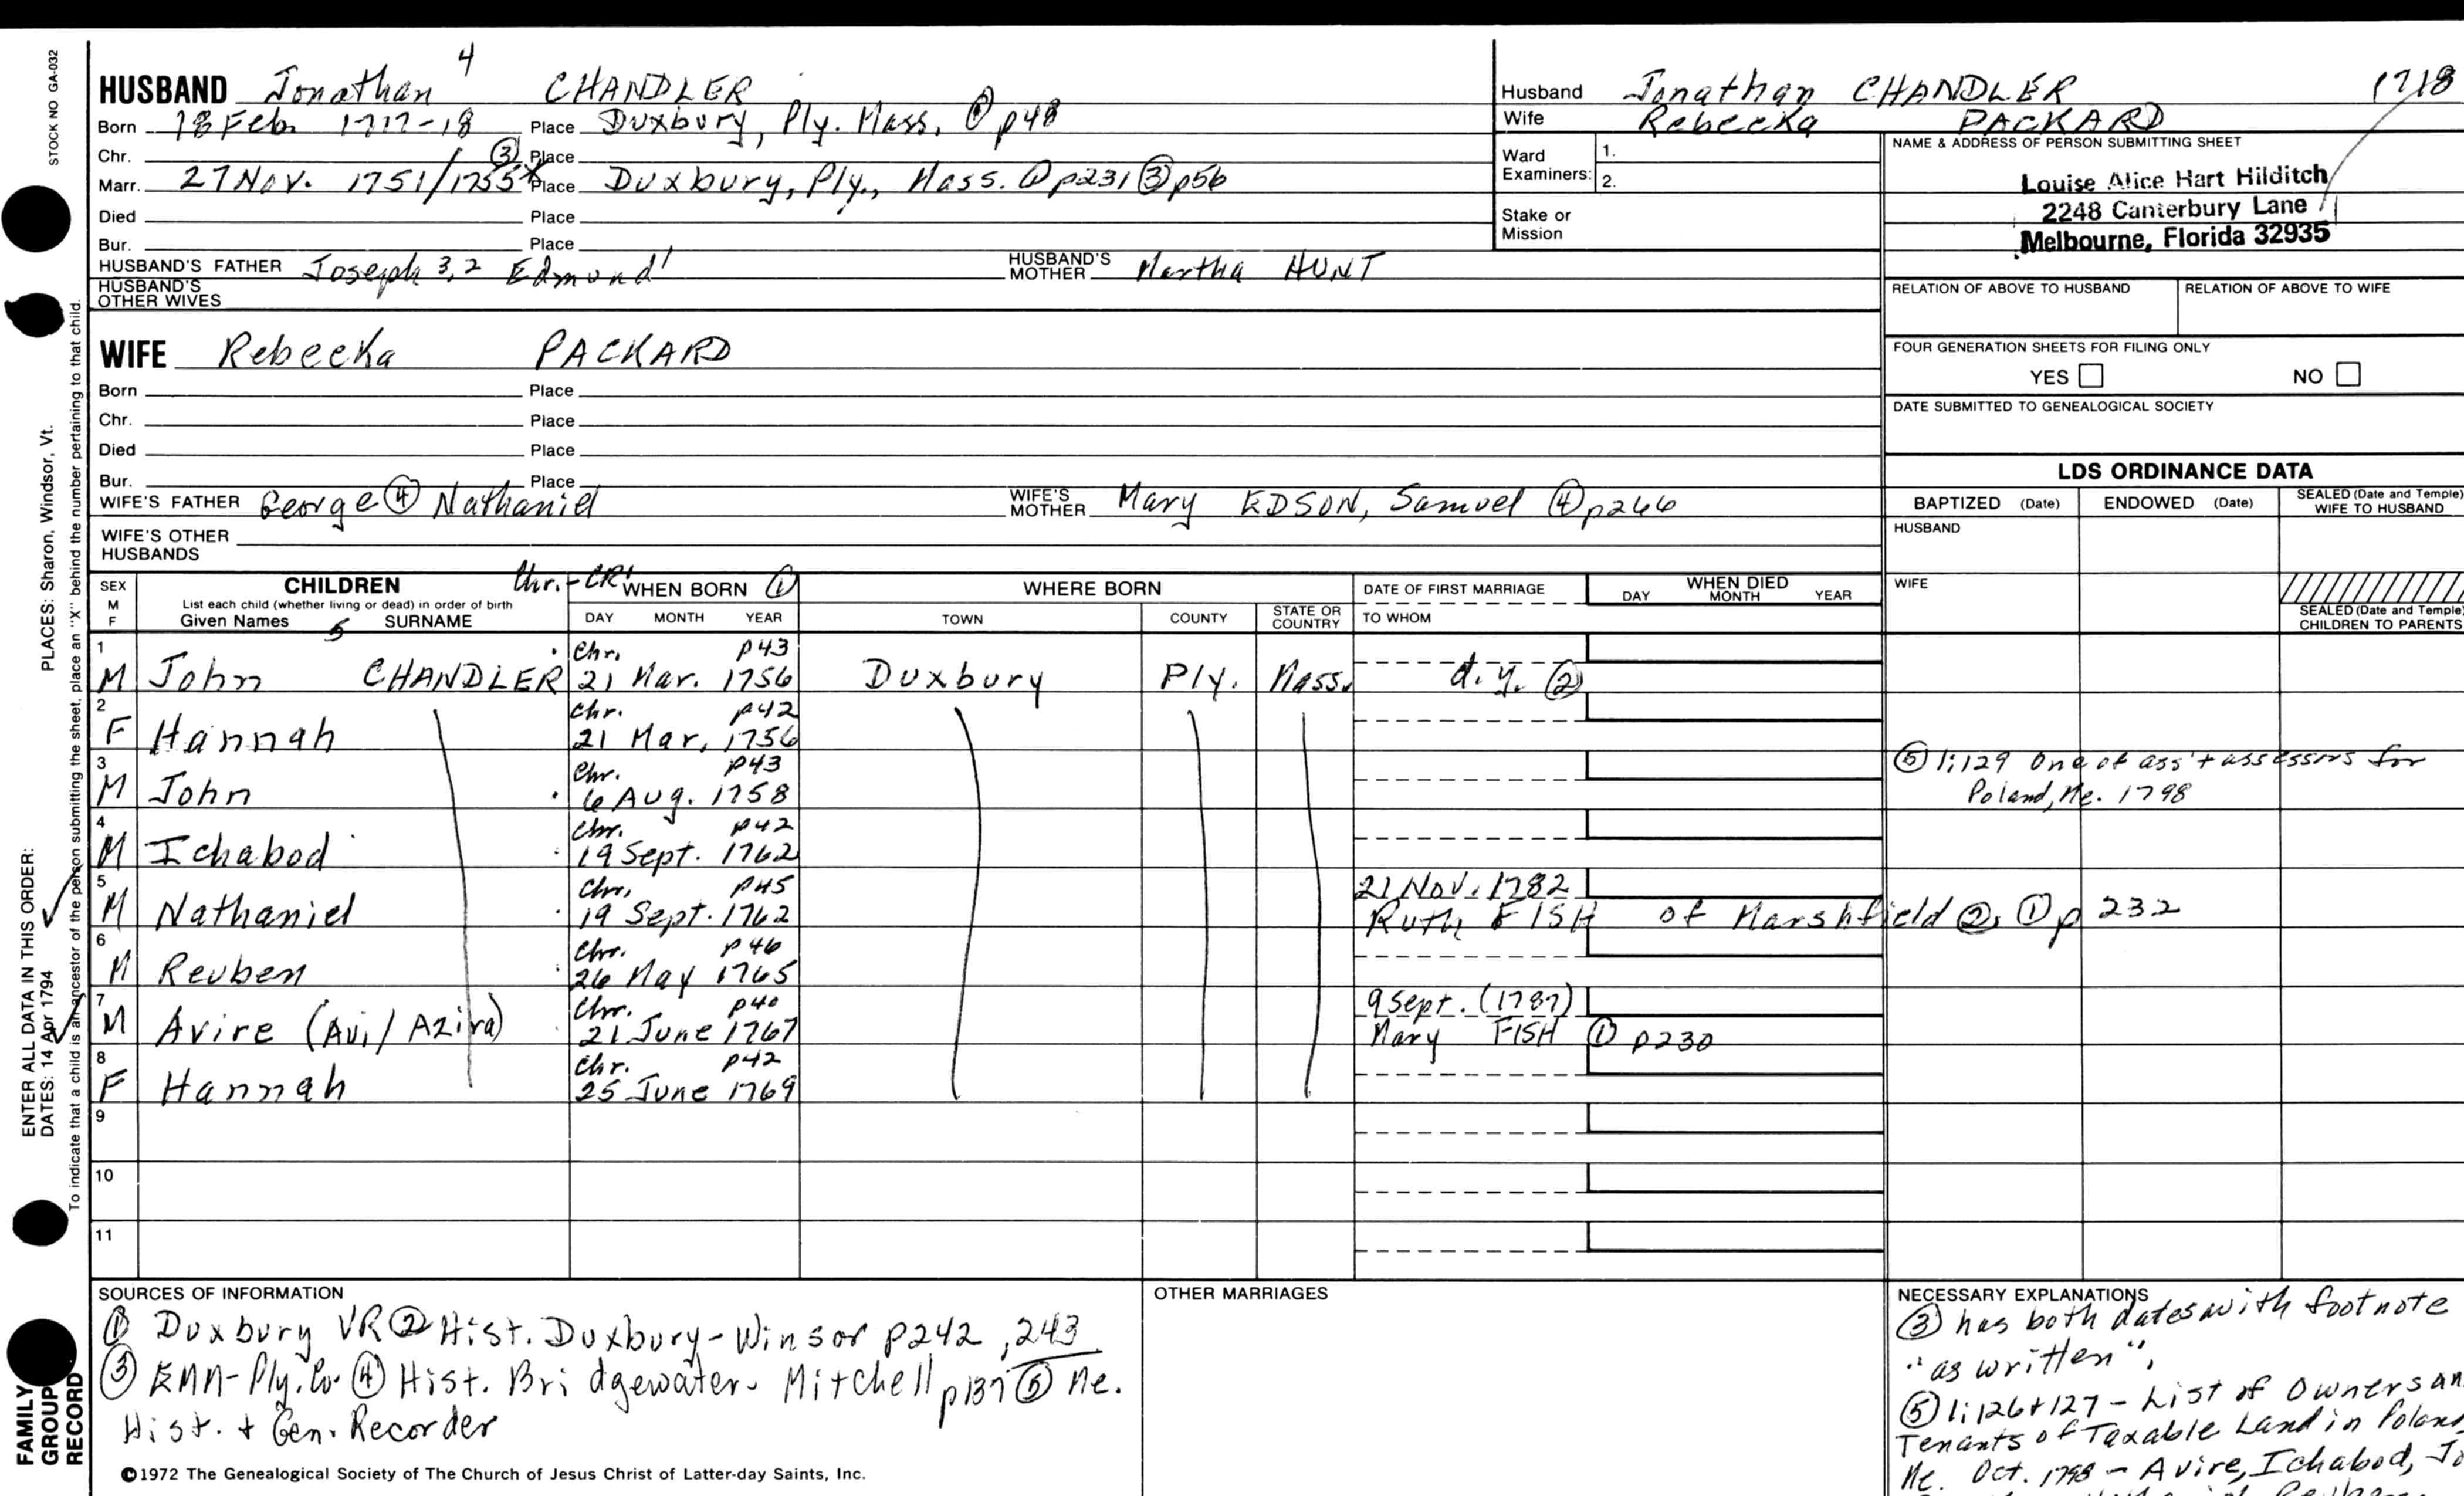 STOCK NO GA-032
PLACES: Sharon, Windsor, Vt.
ENTER ALL DATA IN THIS ORDER:
DATES: 14 Apr 1794
To indicate that a child is an ancestor of the person submitting the sheet, place an "X" behind the number pertaining to that child.
FAMILY GROUP RECORD
HUSBAND Jonathan 4 CHANDLER
Born 18 Feb. 1717-18 Place Duxbury, Ply. Mass. ① p48
Chr. Place
Marr. 27 Nov. 1751/1755 ③ x Place Duxbury, Ply., Mass. ① p231 ③ p56
Died Place
Bur. Place
HUSBAND'S FATHER Joseph 3,2 Edmund 1 HUSBAND'S MOTHER Martha HUNT
HUSBAND'S OTHER WIVES
WIFE Rebecka PACKARD
Born Place
Chr. Place
Died Place
Bur. Place
WIFE'S FATHER George ④ Nathaniel WIFE'S MOTHER Mary EDSON, Samuel ④ p266
WIFE'S OTHER HUSBANDS
Husband Jonathan CHANDLER 1718
Wife Rebecka PACKARD
Ward Examiners: 1.
2.
Stake or Mission
NAME & ADDRESS OF PERSON SUBMITTING SHEET
Louise Alice Hart Hilditch
2248 Canterbury Lane
Melbourne, Florida 32935
RELATION OF ABOVE TO HUSBAND RELATION OF ABOVE TO WIFE
FOUR GENERATION SHEETS FOR FILING ONLY
YES NO
DATE SUBMITTED TO GENEALOGICAL SOCIETY
LDS ORDINANCE DATA
BAPTIZED (Date) ENDOWED (Date) SEALED (Date and Temple) WIFE TO HUSBAND
HUSBAND
WIFE
SEALED (Date and Temple) CHILDREN TO PARENTS
SEX M F CHILDREN Chr. - CR1 WHEN BORN ① WHERE BORN DATE OF FIRST MARRIAGE WHEN DIED
List each child (whether living or dead) in order of birth
Given Names 5 SURNAME DAY MONTH YEAR TOWN COUNTY STATE OR COUNTRY TO WHOM DAY MONTH YEAR
1 Chr. p43
M John CHANDLER 21 Mar. 1756 Duxbury Ply. Mass. d.y. ②
2 Chr. p42
F Hannah 21 Mar. 1756
3 Chr. p43
M John 6 Aug. 1758
⑤ 1:129 One of ass't assessors for
Poland, Me. 1798
4 Chr. p42
M Ichabod 19 Sept. 1762
5 Chr. p45 21 Nov. 1782
M Nathaniel 19 Sept. 1762 Ruth FISH of Marshfield ②, ① p 232
6 Chr. p46
M Reuben 26 May 1765
7 Chr. p40 9 Sept. (1787)
M Avire (Avi/Azira) 21 June 1767 Mary FISH ① p230
8 Chr. p42
F Hannah 25 June 1769
9
10
11
SOURCES OF INFORMATION
① Duxbury VR ② Hist. Duxbury-Winsor p242, 243
③ EMM-Ply. Co. ④ Hist. Bridgewater - Mitchell p137 ⑤ Me.
Hist. + Gen. Recorder
©1972 The Genealogical Society of The Church of Jesus Christ of Latter-day Saints, Inc.
OTHER MARRIAGES
NECESSARY EXPLANATIONS
③ has both dates with footnote
"as written".
⑤ 1:126+127 - List of Owners an
Tenants of Taxable Land in Poland,
Me. Oct. 1798 - Avire, Ichabod, Jo